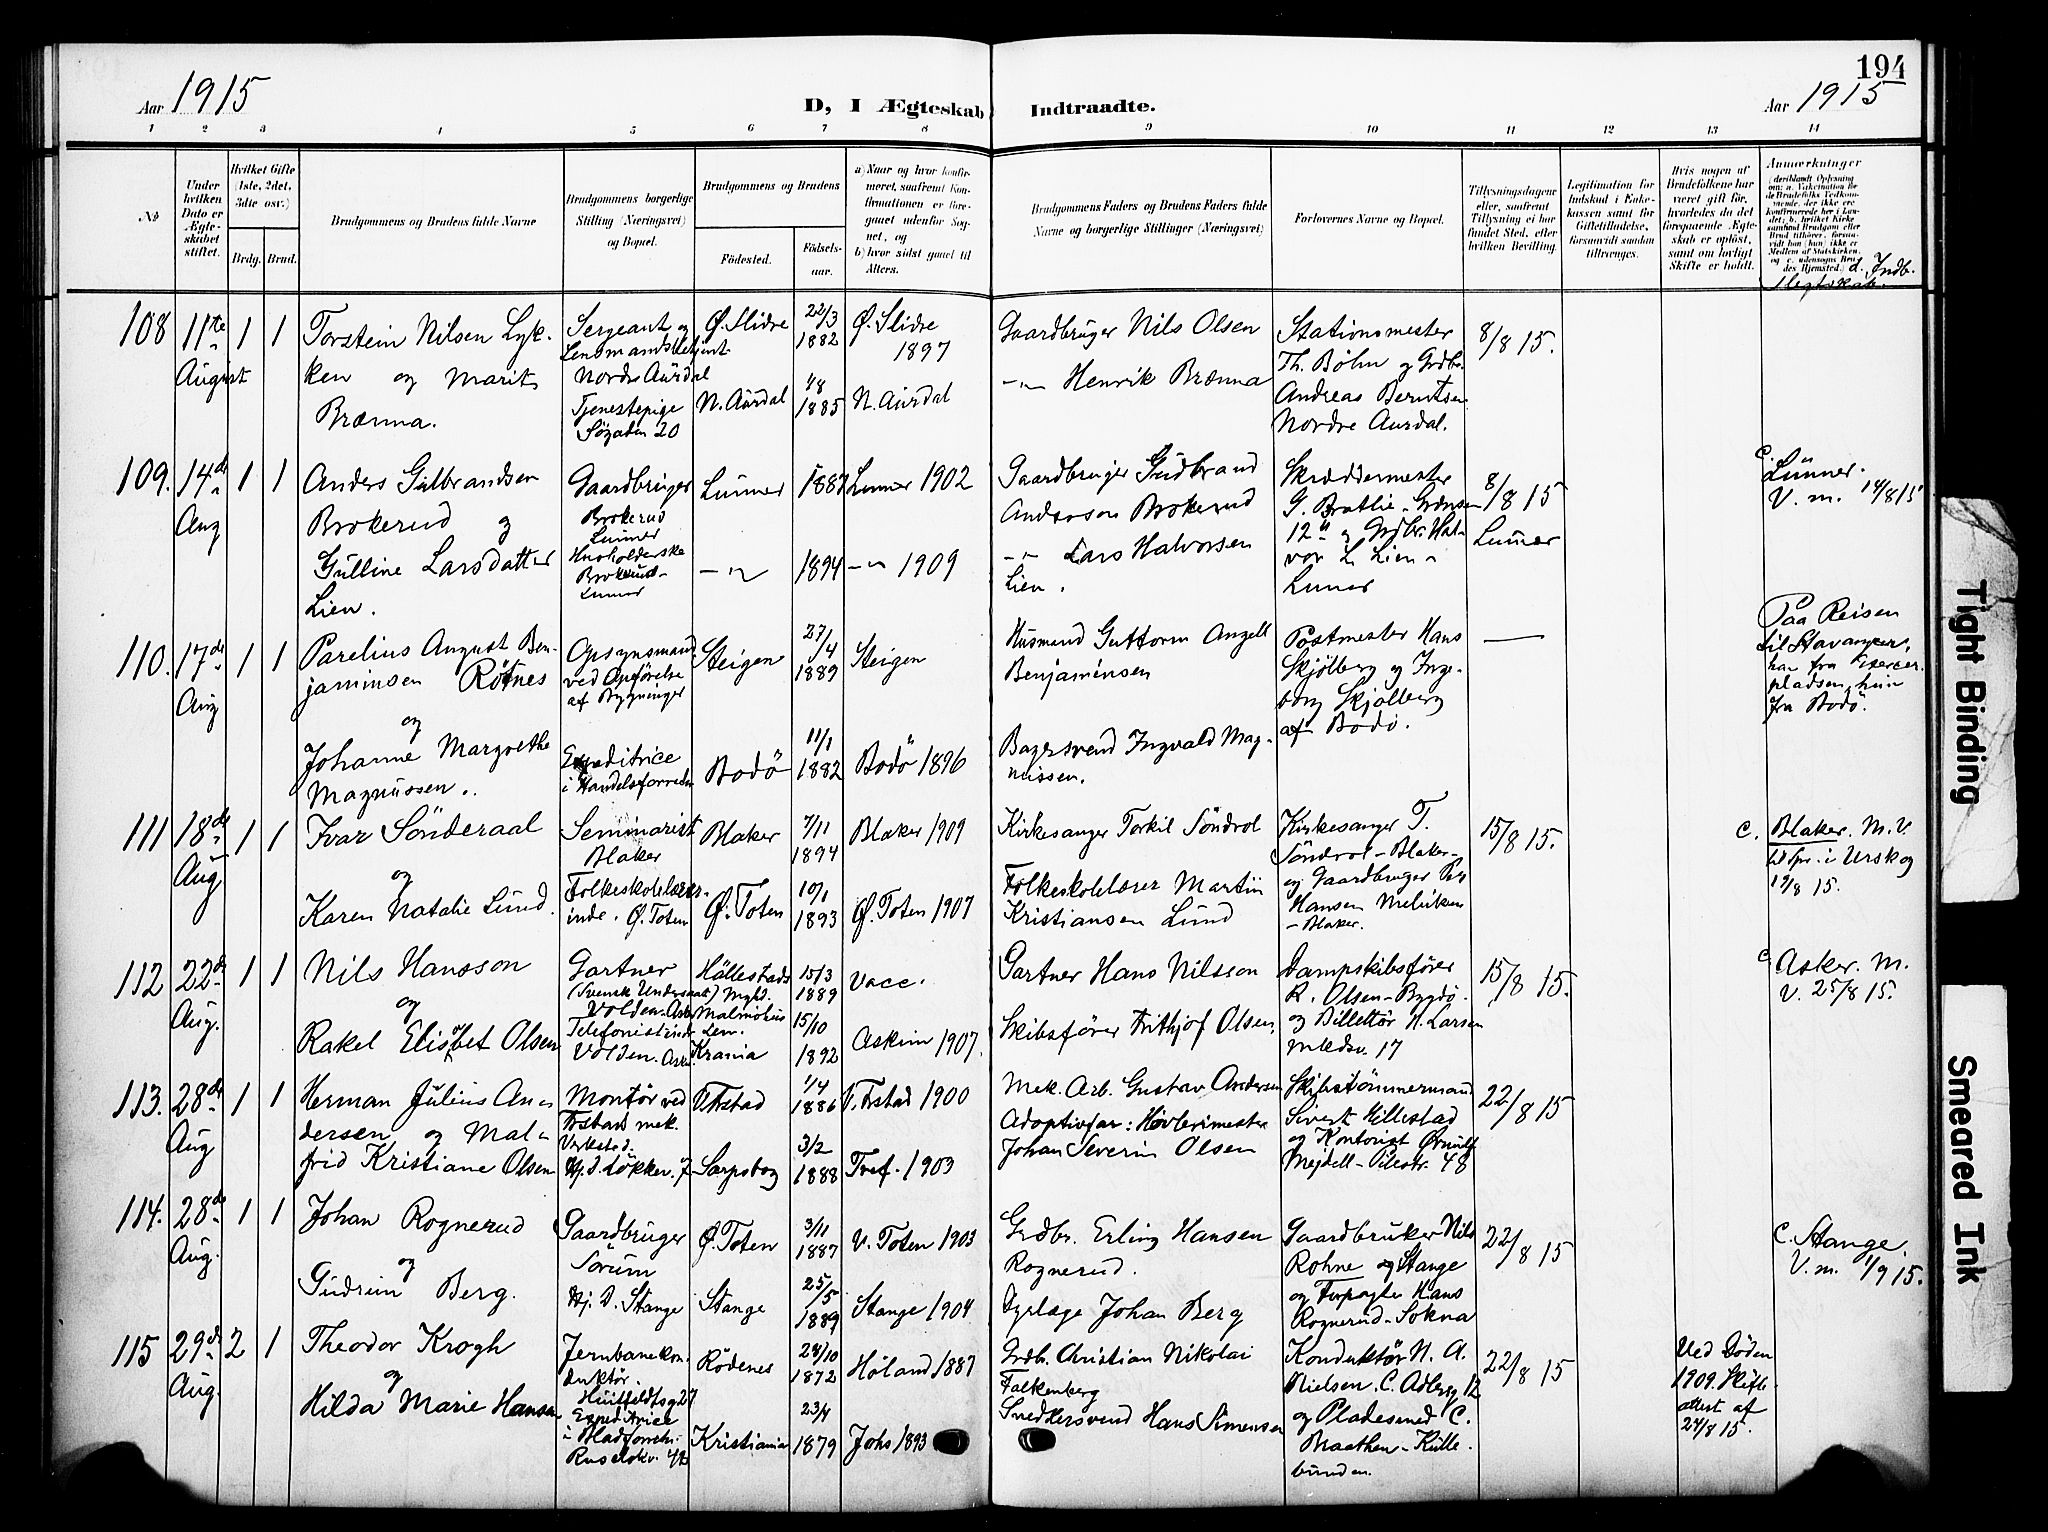 194
Aar 1915
D, I Ægteskab Indtraadte.
Aar 1915
1 2 3 4 5 6 7 8 9 10 11 12 13 14
No
Under hvilken Dato er Ægteskabet stiftet.
Hvilket Gifte (1ste, 2det, 3die osv.)
Brdg. Brud.
Brudgommens og Brudens fulde Navne
Brudgommens borgerlige Stilling (Næringsvei) og Bopæl.
Brudgommens og Brudens
Födested.
Födsels-aar.
a) Naar og hvor konfirmeret, saafremt Konfirmationen er foregaaet udenfor Sognet, og
b) hvor sidst gaaet til Alters.
Brudgommens Faders og Brudens Faders fulde Navne og borgerlige Stillinger (Næringsvei)
Forlovernes Navne og Bopæl.
Tillysningsdagene eller, saafremt Tillysning ei har fundet Sted, efter hvilken Bevilling.
Legitimation for Indskud i Enkekassen samt for Giftetilladelse, forsaavidt saadan tiltrænges.
Hvis nogen af Brudefolkene har været gift før, hvorledes da det foregaaende Ægteskab er opløst, samt om lovligt Skifte er holdt.
Anmærkninger
d. Indb. Slegtskab.
108 11te August 1 1
Torstein Nilsen Lyk-
ken og Marit
Brænna.
Sergeant og
Lensmandsbetjent
Nordre Aurdal
Tjenestepige
Søgaden 20
Ø. Slidre 22/3 1882
Ø. Slidre 1897
N. Aurdal 1/8 1885
N. Aurdal
Gaardbruger Nils Olsen
-"- Henrik Brænna
Stationsmester
Th. Bøhn og Grdbr.
Andreas Berntsen
Nordre Aurdal.
8/8 15.
109. 14de Aug 1 1
Anders Gulbrandsen
Brokerud og
Gulline Larsdatter
Lien.
Gaardbruger
Brokerud
Lunner
Husholderske
Brokerud-
Lunner
Lunner 1887 Lunner 1902
-"- 1894 -"- 1909
Gaardbruger Gudbrand
Anderson Brokerud
-"- Lars Halvorsen
Lien.
Skræddermester
G. Bratlie - Grænsen
12 og Grdbr. Hal-
vor L. Lien -
Lunner
8/8 15
Lunner
c. Lunner.
V. m. 14/8 15
110. 17de Aug 1 1
Parelius August Ben-
jaminsen Røtnes
og
Johanne Margrethe
Magnussen.
Opsynsmand
ved Opførelse
af Bygninger
Expeditrice
i Handelsforretn
Steigen 27/4 1889
Steigen
Bodö 11/1 1882
Bodö 1896
Husmand Guttorm Angell
Benjaminsen
Bagersvend Ingvald Mag-
nussen.
Postmester Hans
Skjølberg og Inge-
borg Skjølberg
af Bodö.
Paa Reisen
til Stavanger,
han fra Exercer-
pladsen, hun
fra Bodö.
111 18de Aug 1 1
Ivar Sönderaal
og
Karen Natalie Lund.
Seminarist
Blaker
Folkeskolelærer-
inde, Ø. Toten
Blaker 7/11 1894
Blaker 1909
Ø. Toten 10/1 1893
Ø. Toten 1907
Kirkesanger Torkil Söndrol
Folkeskolelærer Martin
Kristiansen Lund
Kirkesanger T.
Söndrol - Blaker -
og Gaardbruger
Hansen
- Blaker.
15/8 15.
c. Blaker. M. V.
til Spr. i Urskog
19/8 15.
112 22de Aug. 1 1
Nils Hansson
og
Rakel Elisabet Olsen
Gartner
(Svensk Undersaat)
Volden. Asker
Telefonistinde
Volden. Asker
Hällestads
Malmöhus
Len.
15/3 1889
vacc.
Krania 15/10 1892
Askim 1907.
Gartner Hans Nilsson
Skibsfører Frithjof Olsen
Dampskibsfører
R. Olsen - Bygdö.
og Billettör N. Larsen
Mædsv. 17
15/8 15.
c. Asker. M.
V. 25/8 15.
113. 28de Aug 1 1
Herman Julius An-
dersen og Mal-
frid Kristiane Olsen
Montør ved
mek.
Verksted.
Hj. d. Løkkev. 7
1/4 1886
1900
Sarpsborg 3/2 1888
Tref. 1903
Mek. Arb. Gustav Andersen
Adoptivfar: Høvlerimester
Johan Severin Olsen
Skibstömmermand
Sivert Hillestad
og Kontorist
Mejdell - Pilestr. 48
22/8 15
114. 28de Aug. 1 1
Johan Rognerud
og
Gudrun Berg.
Gaardbruger
Sørum
Hj. d. Stange
Ø. Toten 3/11 1887
V. Toten 1903
Stange 25/5 1889
Stange 1904
Grdbr. Erling Hansen
Rognerud.
Dyrlæge Johan Berg
Gaardbruker Nils
Rohne og Stange
og Forpagter Hans
Rognerud - Sokna
22/8 15
c. Stange.
V. m. 1/9 15.
115 29de Aug. 2 1
Theodor Krogh
og
Hilda Marie Hansen
Jernbanekon-
duktør.
Huitfeldtsg 27
Expeditrice
i Bladforretn.
Ruseløkv. 42
Rödenes 24/10 1872
Høland 1887
Kristiania 23/4 1879
Johs 1893
Grdbr. Christian Nikolai
Falkenberg
Snedkersvend Hans Simensen
Konduktør N. A.
Nielsen. C. Adlersg 12
og Pladesmed C.
Braathen - Kulle-
bunden.
22/8 15
Ved Döden
1909. Skifte-
attest af
24/8 15.
Tight Binding
Smeared Ink